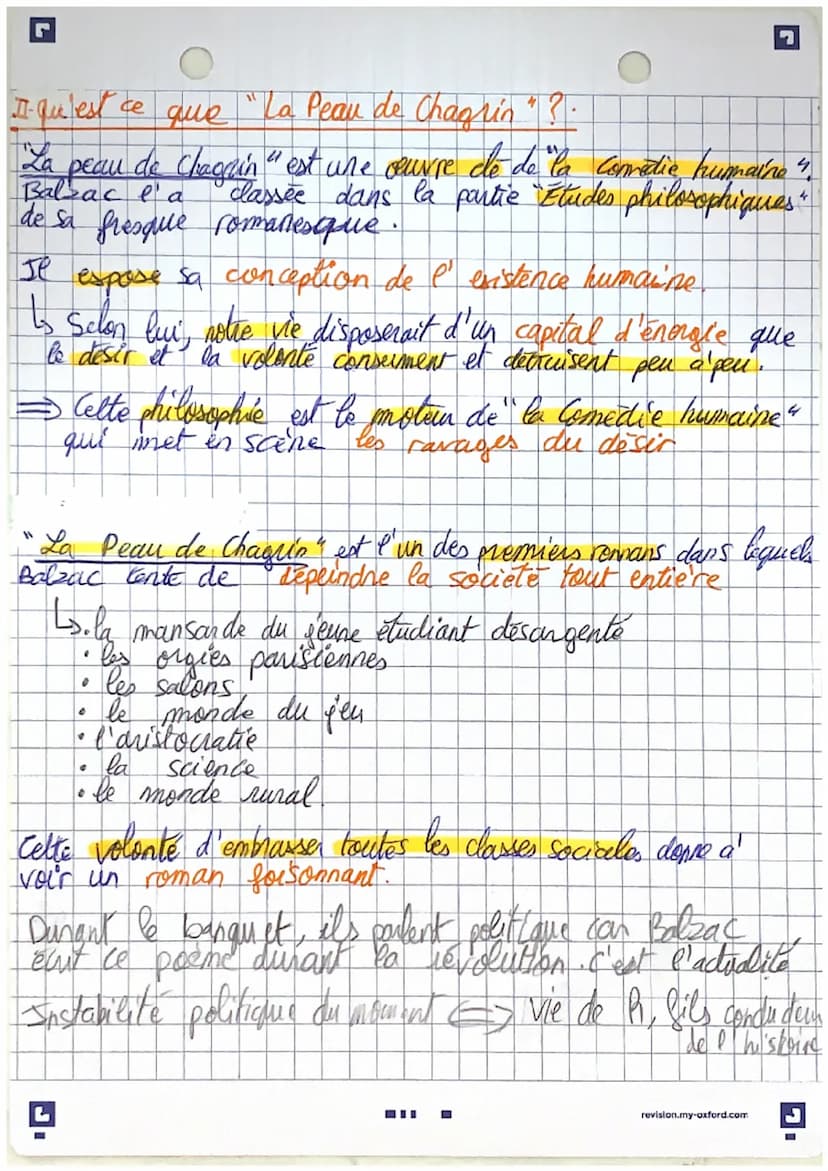 II-qu'est ce que "La Peau de Chagrin" ?.
"La peau de Chagrin" est une œuvre clé de "la Comédie humaine".
Balzac l'a classée dans la partie "Études philosophiques"
de sa fresque romanesque.
Il expose sa conception de l'existence humaine.
↳ Selon lui, notre vie disposerait d'un capital d'énergie que
le désir et la volonté consument et détruisent peu à peu.
⇒ Cette philosophie est le moteur de "la Comédie humaine"
qui met en scène les ravages du désir
"La Peau de Chagrin" est l'un des premiers romans dans lequels
Balzac tente de dépeindre la société tout entière
↳ • la mansarde du jeune étudiant désargenté
• les orgies parisiennes
• les salons
• le monde du jeu
• l'aristocratie
• la science
• le monde rural.
Cette volonté d'embrasser toutes les classes sociales donne à
voir un roman foisonnant.
Durant le banquet, ils parlent politique car Balzac
écrit ce poème durant la révolution. c'est l'actualité
Instabilité politique du moment ⇔ vie de R, fils conducteur
de l'histoire
revision.my-oxford.com